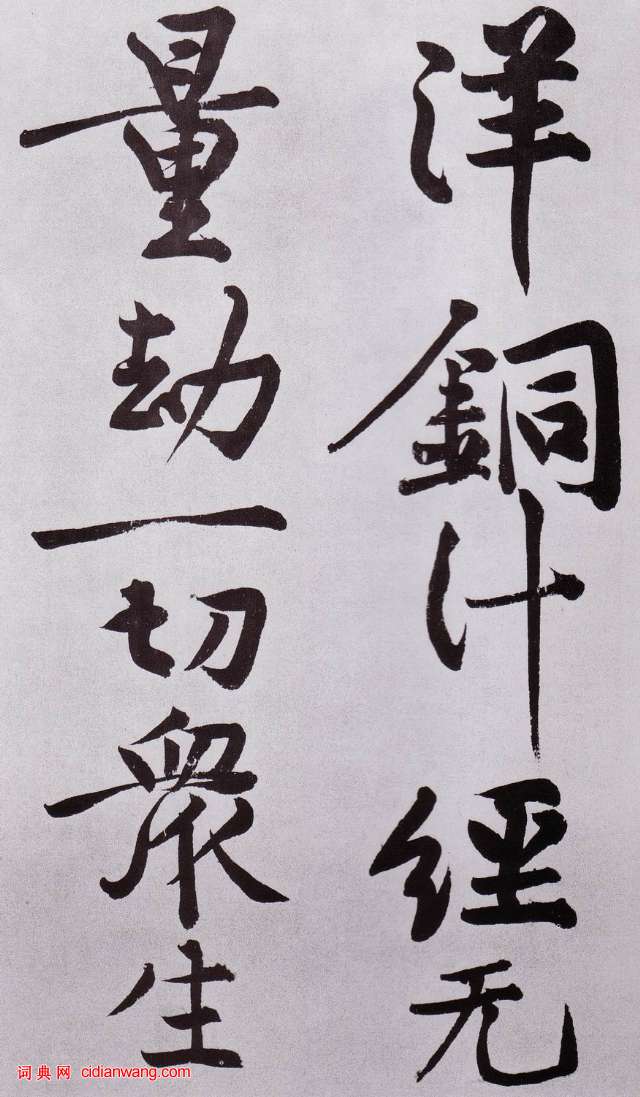 洋銅汁經无
量劫一切衆生
词典网 cidianwang.com